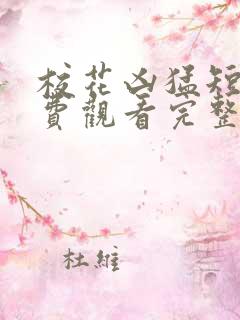 校花凶猛短
費觀看完整
杜維